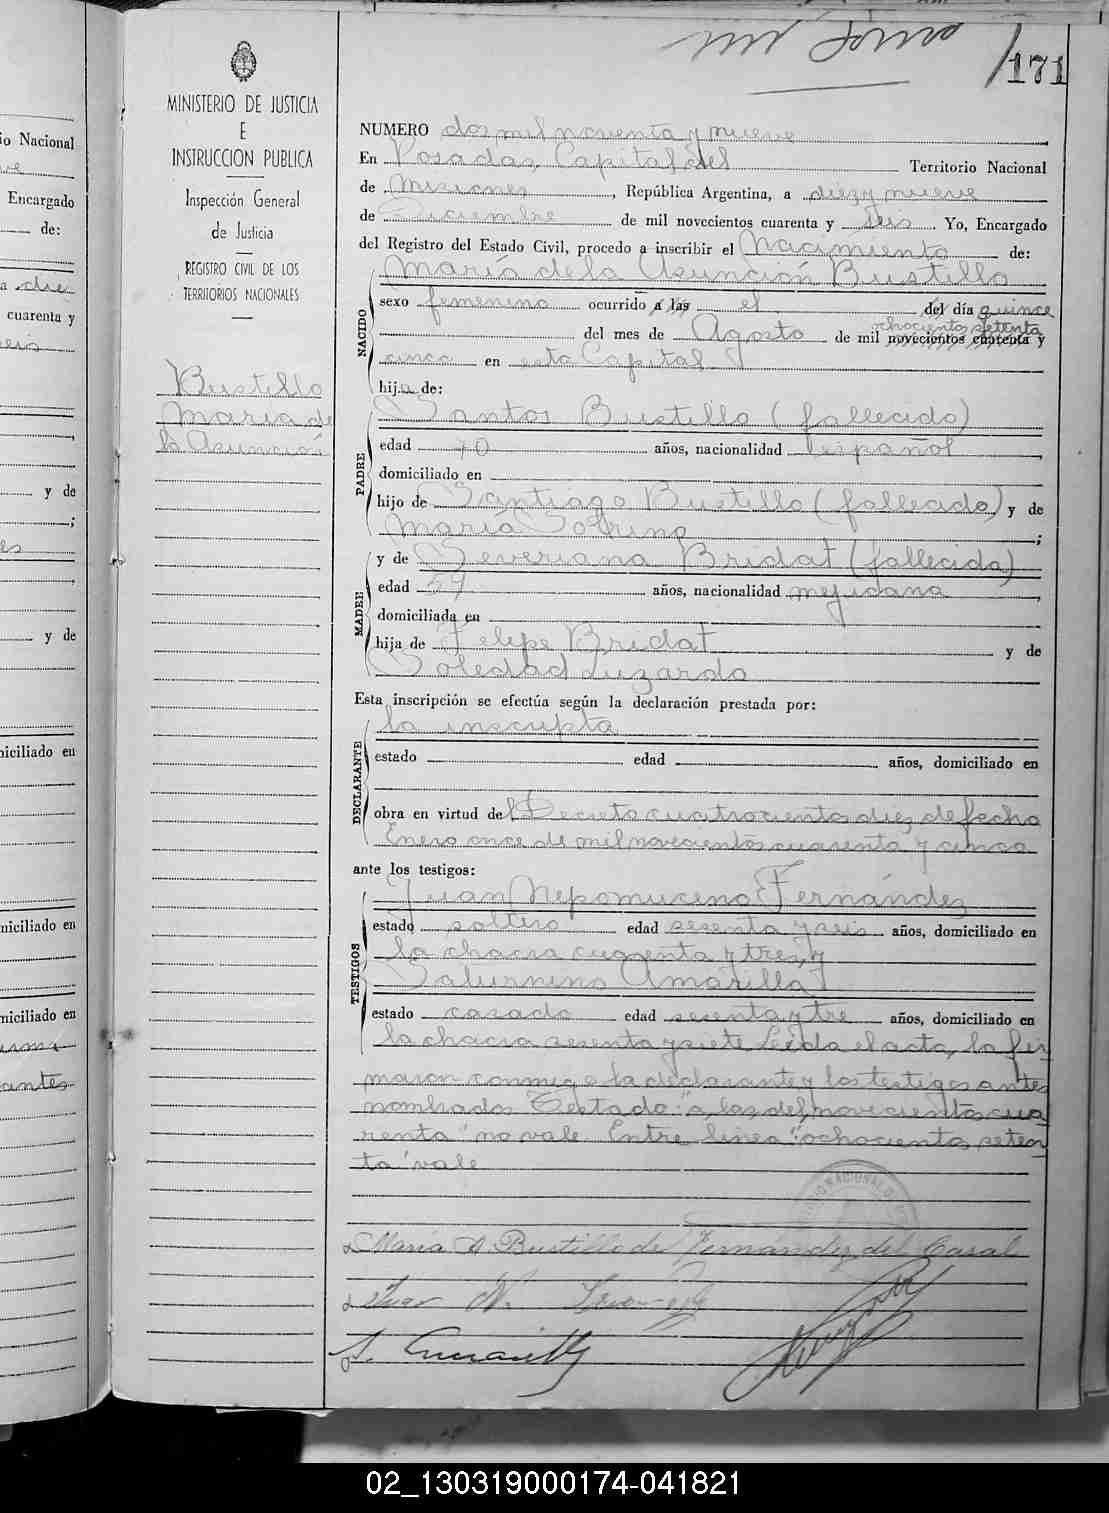 171
MINISTERIO DE JUSTICIA
E
INSTRUCCION PUBLICA
Inspección General
de Justicia
REGISTRO CIVIL DE LOS
TERRITORIOS NACIONALES
Bustillo
Maria de
la Asunción
NUMERO dos mil noventa y nueve
En Posadas, Capital del Territorio Nacional
de Misiones, República Argentina, a diez y nueve
de Diciembre de mil novecientos cuarenta y seis Yo, Encargado
del Registro del Estado Civil, procedo a inscribir el Nacimiento de:
María de la Asunción Bustillo
NACIDO
sexo femenino ocurrido a las el del día quince
ochocientos setenta
del mes de Agosto de mil novecientos cuarenta y
cinco en esta Capital
hija de:
PADRE
Santos Bustillo (fallecido)
edad 40 años, nacionalidad español
domiciliado en
hijo de Santiago Bustillo (fallecido) y de
María Sobrino;
MADRE
y de Severiana Bridat (fallecida)
edad 59 años, nacionalidad mejicana,
domiciliada en
hija de Felipe Bridat y de
Soledad Luzardo
Esta inscripción se efectúa según la declaración prestada por:
DECLARANTE
la inscripta
estado edad años, domiciliado en
obra en virtud del Decreto cuatrocientos diez de fecha
Enero once de mil novecientos cuarenta y cinco
ante los testigos:
TESTIGOS
Juan Nepomuceno Fernández
estado soltero edad sesenta y seis años, domiciliado en
la chacra cuarenta y tres, y
Saturnino Amarilla
estado casado edad sesenta y tre años, domiciliado en
la chacra sesenta y siete Leída el acta, la fir
maron conmigo la declarante y los testigos antes
nombrados Testado: "a las del, novecientos cua
renta" no vale Entre linea: "ochocientos seten
ta" vale
Maria A Bustillo de Fernández del Casal
Juan N.
S. Amarilla
io Nacional
Encargado
de:
cuarenta y
y de
y de
niciliado en
niciliado en
niciliado en
antes
02_130319000174-041821